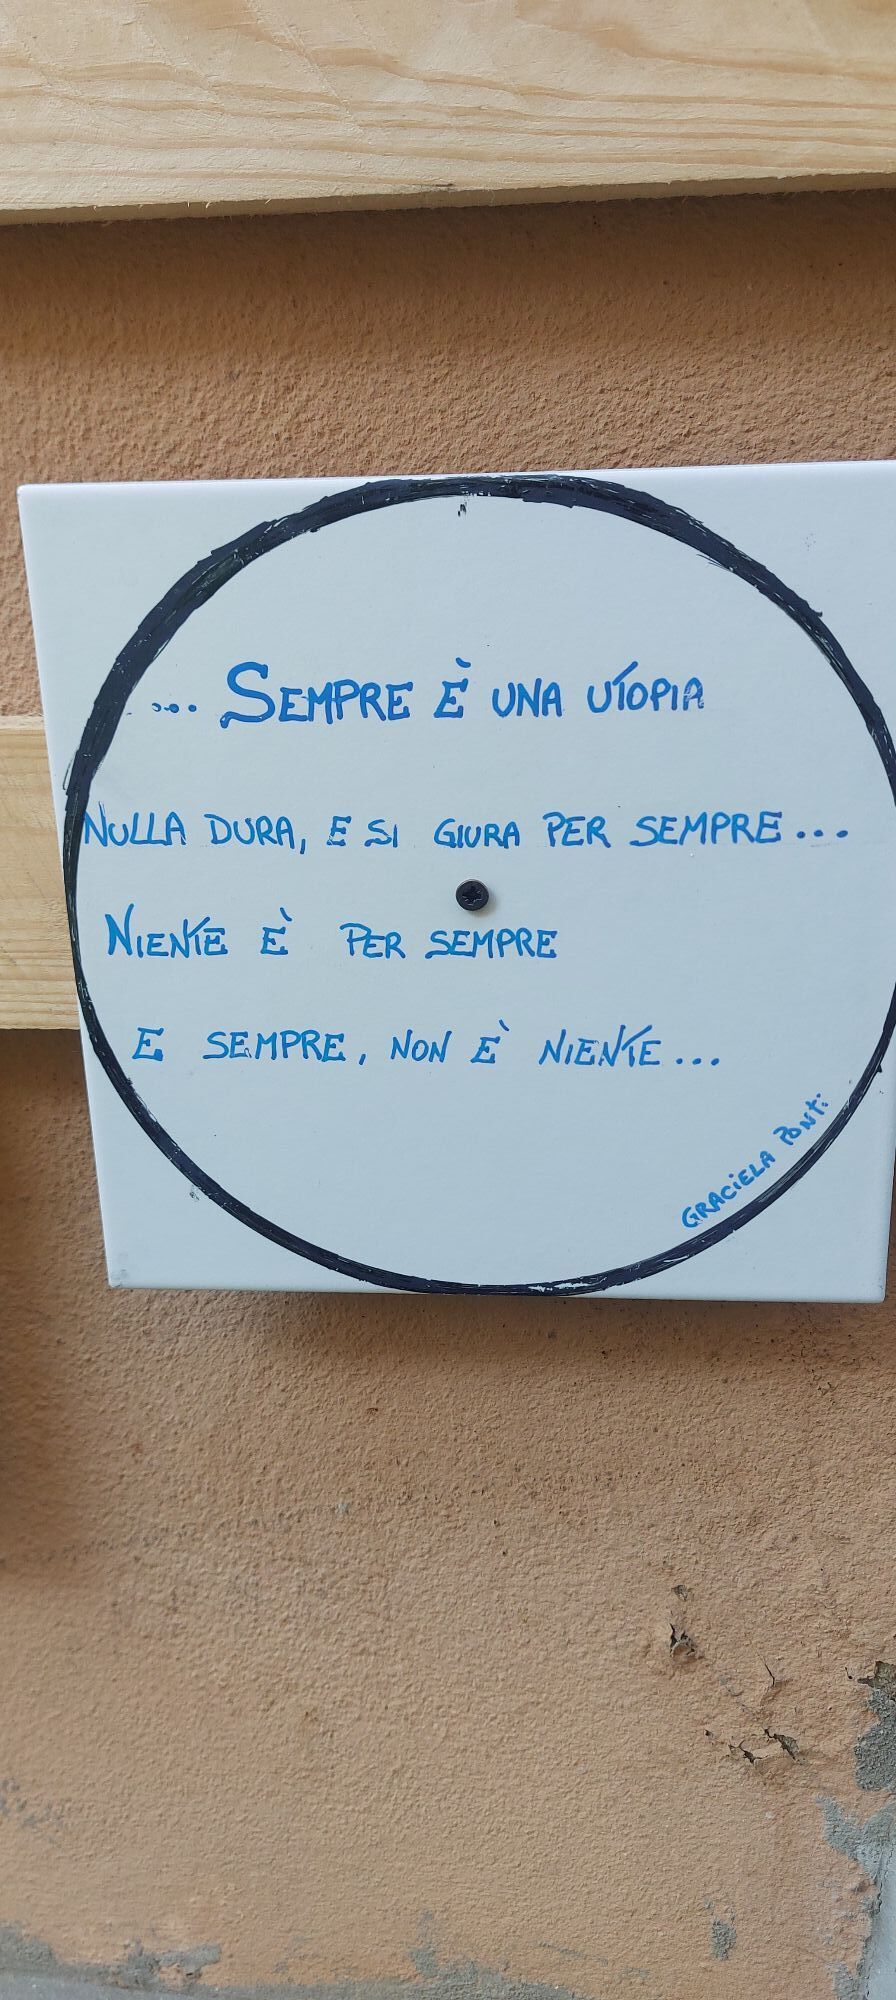 ... SEMPRE È UNA UTOPIA
NULLA DURA, E SI GIURA PER SEMPRE...
NIENTE È PER SEMPRE
E SEMPRE, NON È NIENTE...
GRACiELA PONTi